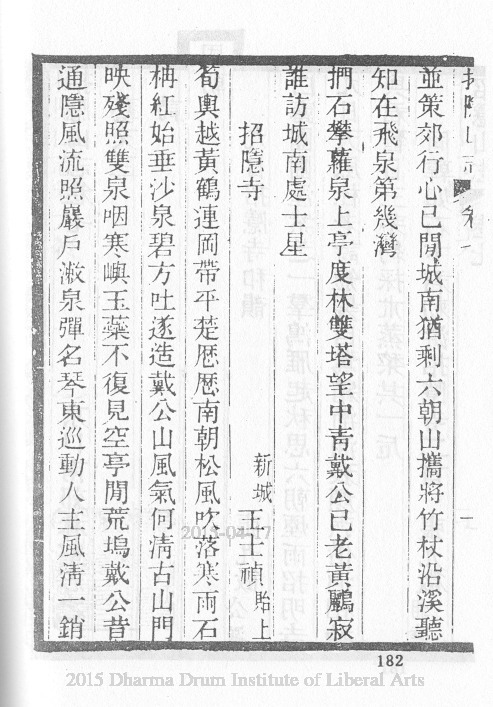 招隱山志 卷
並策郊行心已閒城南猶剩六朝山攜將竹杖沿溪聽
知在飛泉第幾灣
捫石攀蘿泉上亭度林雙塔望中靑戴公已老黃鸝寂
誰訪城南處士星
招隱寺 新城 王士禎 貽上
筍輿越黃鶴連岡帶平楚厯厯南朝松風吹落寒雨石
柟紅始垂沙泉碧方吐遂造戴公山風氣何淸古山門
映殘照雙泉咽寒嶼玉蘂不復見空亭閒荒塢戴公昔
通隱風流照巖戶漱泉彈名琴東巡動人主風淸一銷
182
2015 Dharma Drum Institute of Liberal Arts